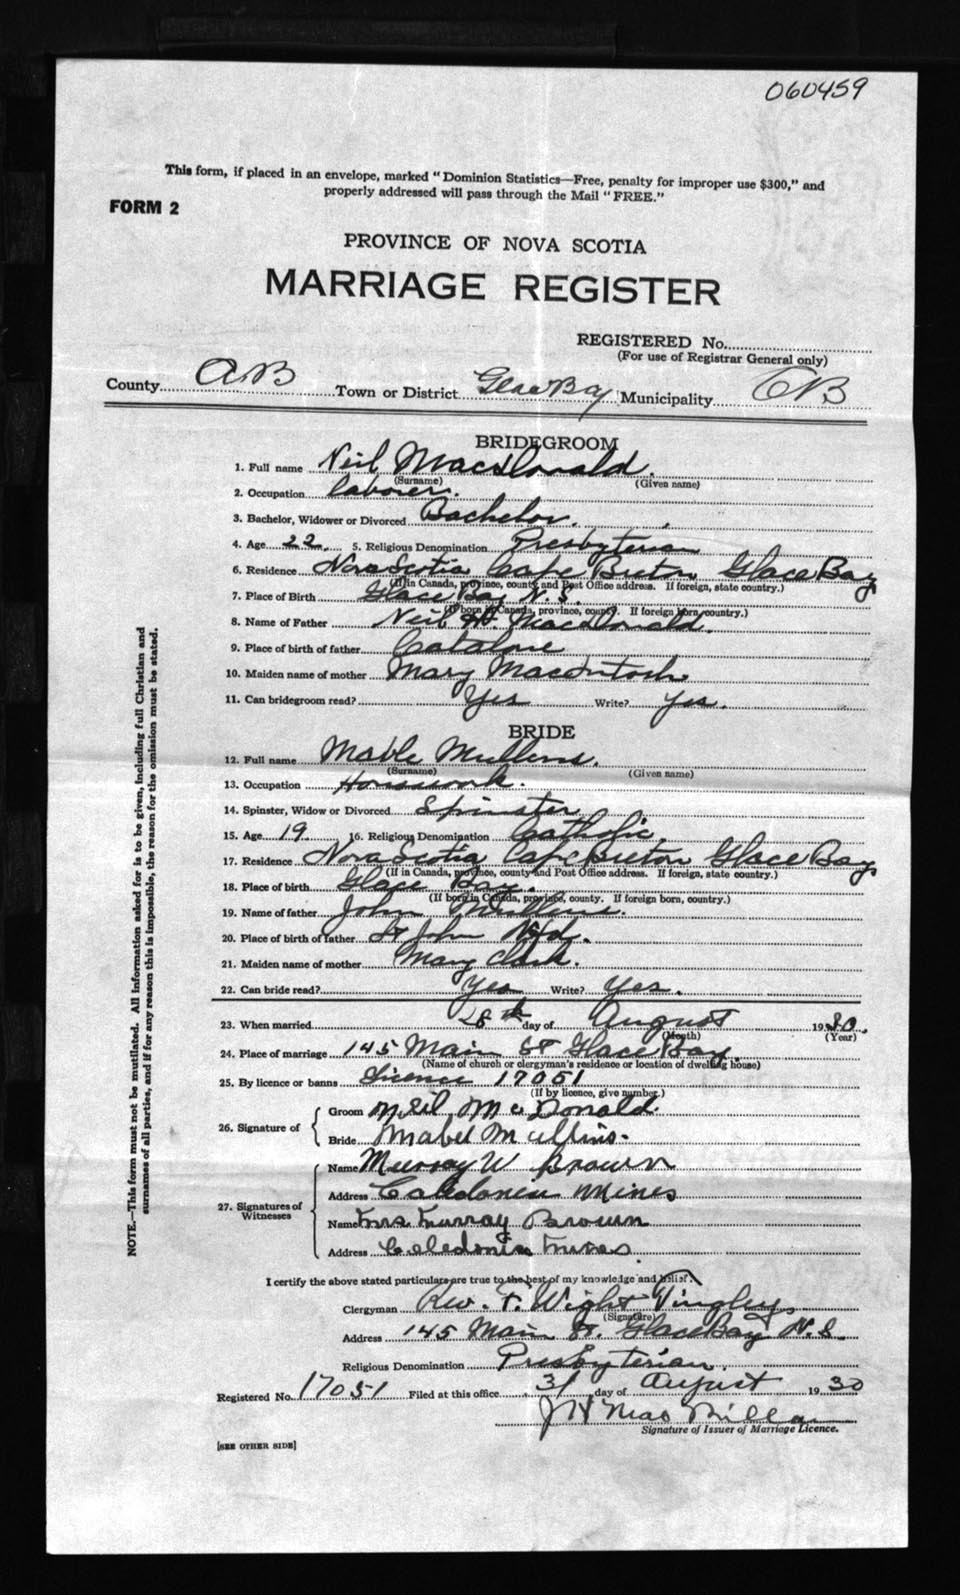 060459
This form, if placed in an envelope, marked "Dominion Statistics—Free, penalty for improper use $300," and
properly addressed will pass through the Mail "FREE."
FORM 2
PROVINCE OF NOVA SCOTIA
MARRIAGE REGISTER
REGISTERED No.
(For use of Registrar General only)
County C.B Town or District Glace Bay Municipality CB
BRIDEGROOM
1. Full name Neil MacDonald.
(Surname) (Given name)
2. Occupation laborer.
3. Bachelor, Widower or Divorced Bachelor.
4. Age 22. 5. Religious Denomination Presbyterian
6. Residence Nova Scotia Cape Breton Glace Bay
(If in Canada, province, county and Post Office address. If foreign, state country.)
7. Place of Birth Glace Bay N.S.
(If born in Canada, province, county. If foreign born, country.)
8. Name of Father Neil H. MacDonald.
9. Place of birth of father Catalone
10. Maiden name of mother Mary MacIntosh
11. Can bridegroom read? Yes Write? Yes.
BRIDE
12. Full name Mable Mullens.
(Surname) (Given name)
13. Occupation Housework.
14. Spinster, Widow or Divorced Spinster
15. Age 19 16. Religious Denomination Catholic.
17. Residence Nova Scotia Cape Breton Glace Bay
(If in Canada, province, county and Post Office address. If foreign, state country.)
18. Place of birth Glace Bay.
(If born in Canada, province, county. If foreign born, country.)
19. Name of father John Mullens.
20. Place of birth of father St John Nfd.
21. Maiden name of mother Mary Clark.
22. Can bride read? Yes Write? Yes.
23. When married 28th day of August 1930.
(Month) (Year)
24. Place of marriage 145 Main St Glace Bay.
(Name of church or clergyman's residence or location of dwelling house)
25. By licence or banns Licence 17051
(If by licence, give number.)
26. Signature of Groom Neil McDonald.
Bride Mabel Mullins.
27. Signatures of Witnesses Name Murray W Brown
Address Caledonia Mines
Name Mrs Murray Brown
Address Caledonia Mines
I certify the above stated particulars are true to the best of my knowledge and belief.
Clergyman Rev. F. Wight
(Signature)
Address 145 Main St. Glace Bay N.S.
Religious Denomination Presbyterian.
Registered No. 17051 Filed at this office 31 day of August 1930
J H MacMillan
Signature of Issuer of Marriage Licence.
[SEE OTHER SIDE]
NOTE.—This form must not be mutilated. All information asked for is to be given, including full Christian and
surnames of all parties, and if for any reason this is impossible, the reason for the omission must be stated.